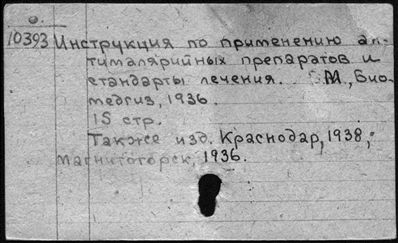 10393 Инструкция по применению ан-
тималярийных препаратов и
стандарты лечения. М., Био-
медгиз, 1936.
15 стр.
Также изд. Краснодар, 1938,
Магнитогорск, 1936.